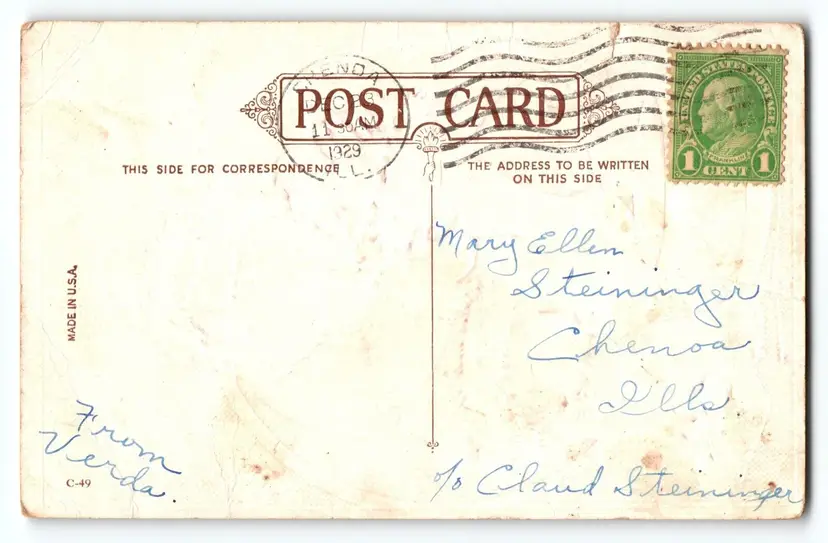 DEC 23
11 30AM
1929
ILL.
POST CARD
UNITED STATES POSTAGE
FRANKLIN
1 CENT 1
THIS SIDE FOR CORRESPONDENCE
THE ADDRESS TO BE WRITTEN
ON THIS SIDE
MADE IN U.S.A.
Mary Ellen
Steininger
Chenoa
Ills
c/o Claud Steininger
From
Verda.
C-49